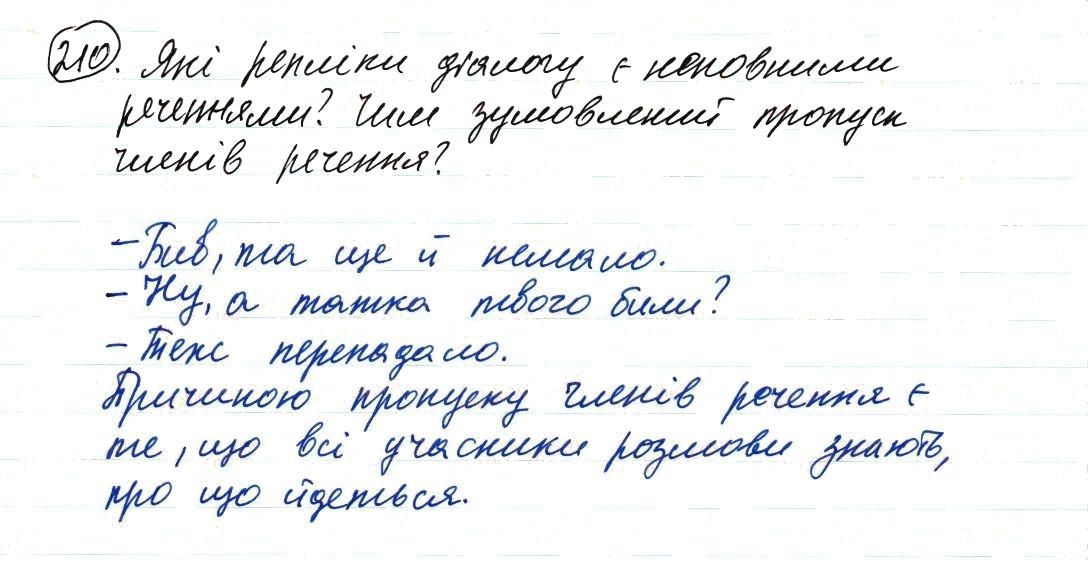 210. Які репліки діалогу є неповними
реченнями? Чим зумовлений пропуск
членів речення?
– Бив, та ще й немало.
– Ну, а татка твого били?
– Теж перепадало.
Причиною пропуску членів речення є
те, що всі учасники розмови знають,
про що йдеться.